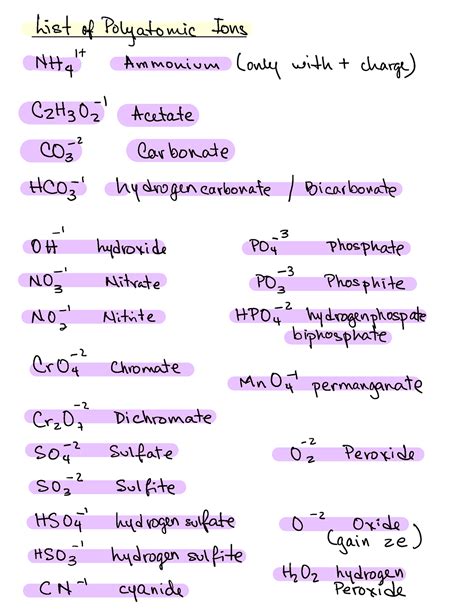 List of Polyatomic Ions
NH₄¹⁺ Ammonium (only with + charge)
C₂H₃O₂⁻¹ Acetate
CO₃⁻² Carbonate
HCO₃⁻¹ hydrogencarbonate / Bicarbonate
OH⁻¹ hydroxide
NO₃⁻¹ Nitrate
NO₂⁻¹ Nitrite
CrO₄⁻² Chromate
Cr₂O₇⁻² Dichromate
SO₄⁻² Sulfate
SO₃⁻² Sulfite
HSO₄⁻¹ hydrogen sulfate
HSO₃⁻¹ hydrogen sulfite
CN⁻¹ cyanide
PO₄⁻³ Phosphate
PO₃⁻³ Phosphite
HPO₄⁻² hydrogenphospate
biphosphate
MnO₄⁻¹ permanganate
O₂⁻² Peroxide
O⁻² Oxide
(gain 2e)
H₂O₂ hydrogen
Peroxide